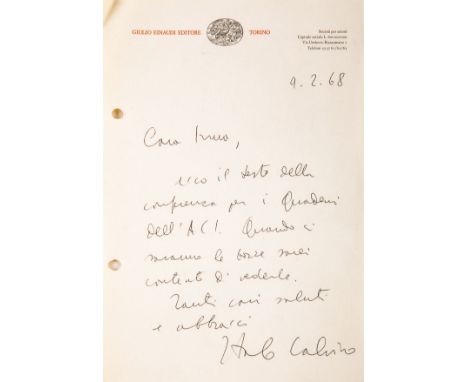 GIULIO EINAUDI EDITORE TORINO
Società per azioni
Via Umberto Biancamano 1
9.2.68
Caro
ecco il testo della
conferenza per i Quaderni
dell'ACI. Quando ci
saranno le bozze sarei
contento di vederle.
Tanti cari saluti
e abbracci
Italo Calvino